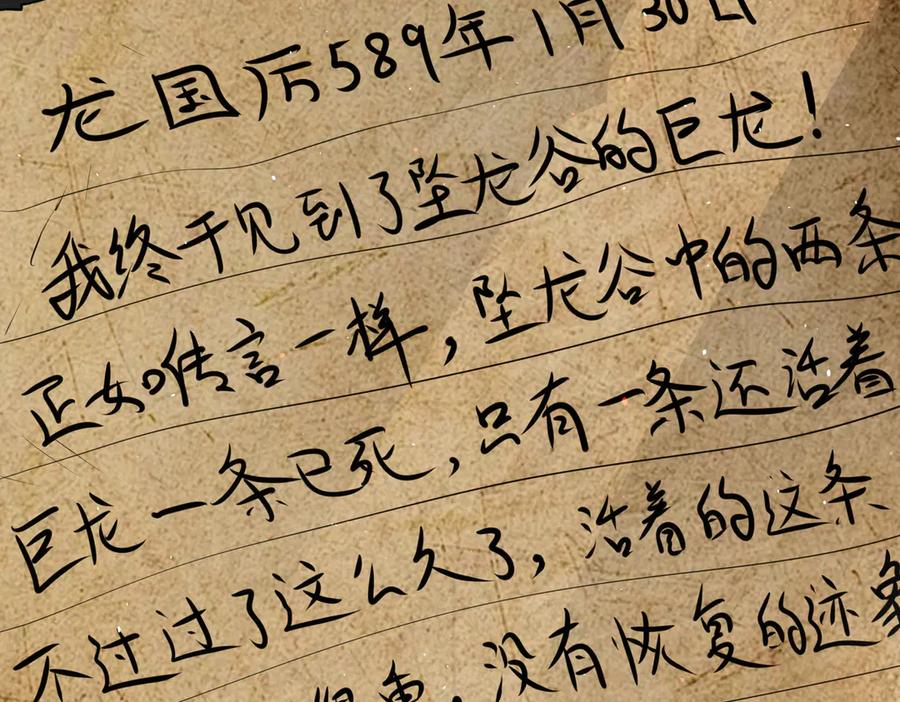 龙国历589年1月30日
我终于见到了坠龙谷的巨龙！
正如传言一样，坠龙谷中的两条
巨龙一条已死，只有一条还活着
不过过了这么久了，活着的这条
重，没有恢复的迹象